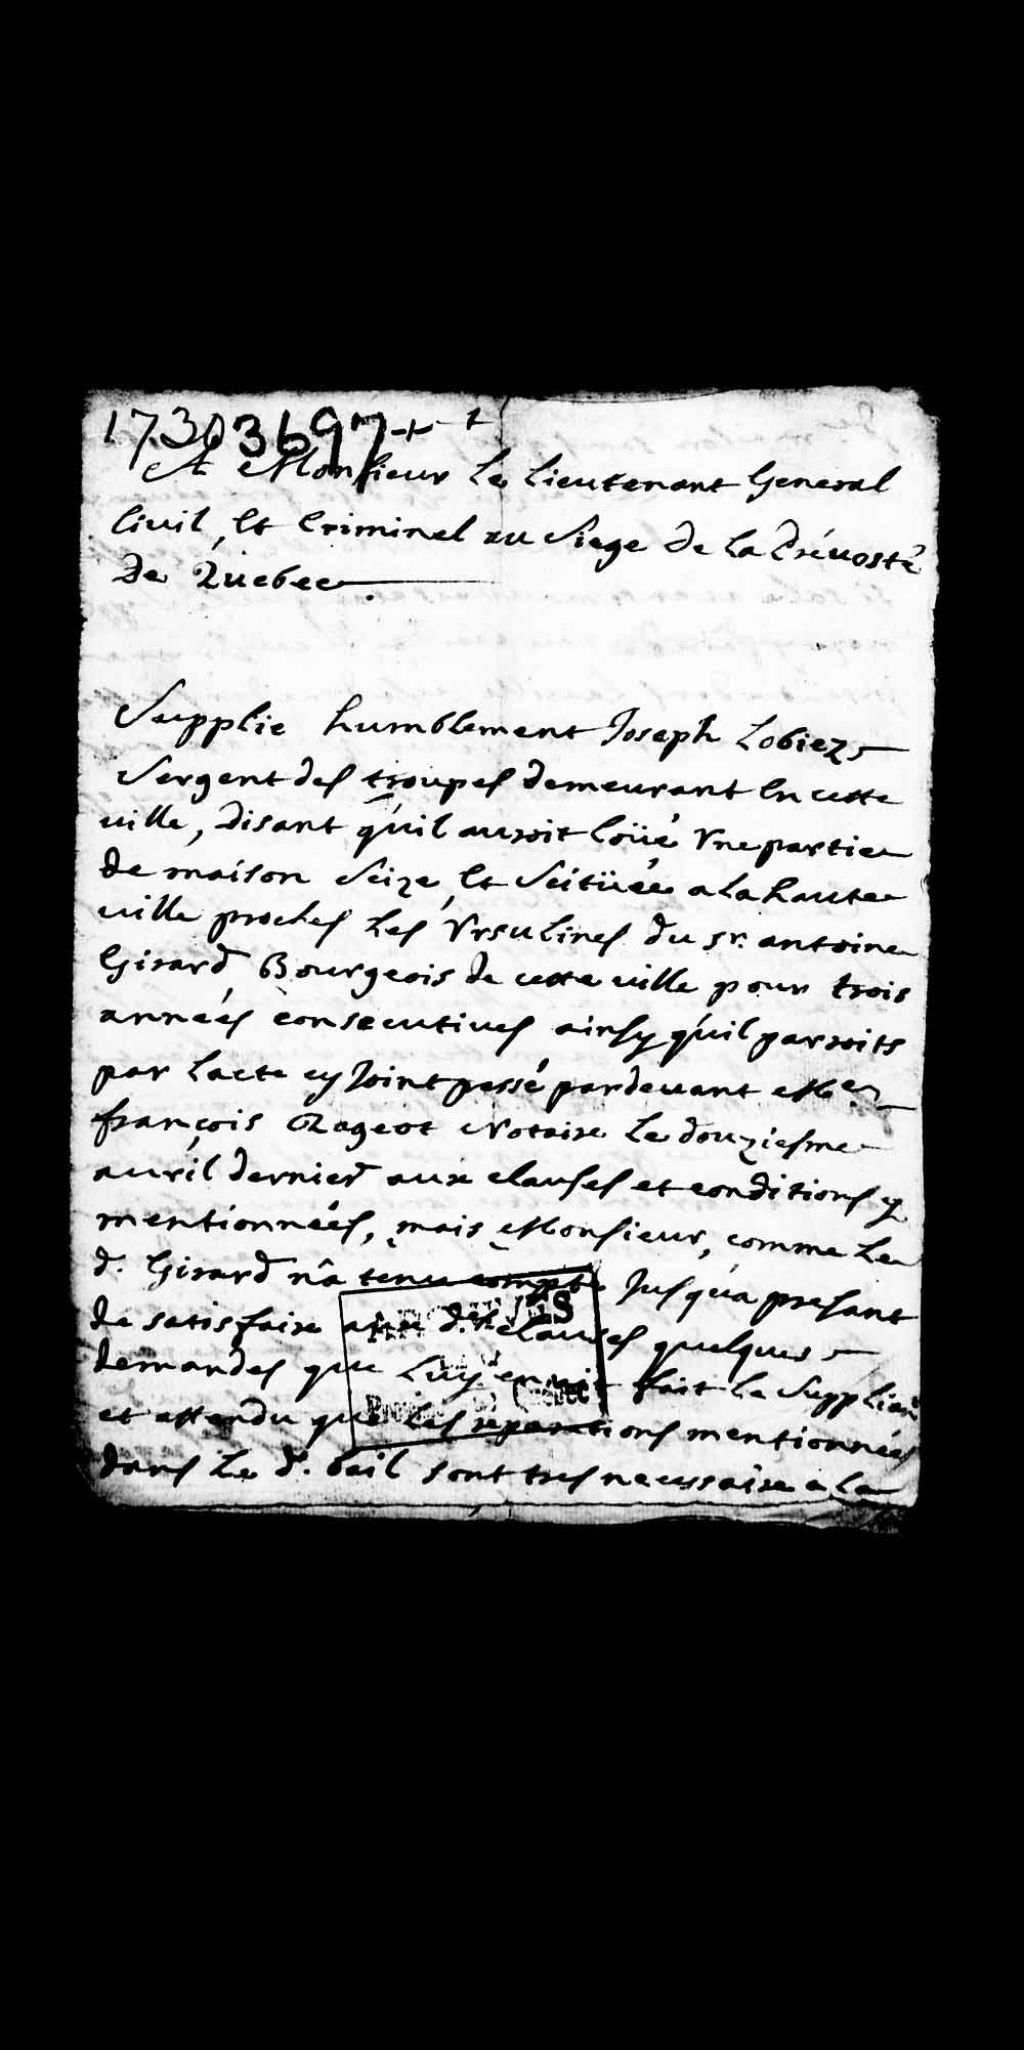 1730 3697
A Monsieur Le Lieutenant General
Civil, Et Criminel au Siege de La Prévosté
De Québec
Supplie humblement Joseph Lobiez
Sergent des troupes demeurant En cette
ville, disant qu'il auroit Loüé Vne partie
de maison Seize, Et Scitüée a La haute
ville proches Les Vrsulines du Sr. antoine
Girard, Bourgeois de cette ville pour trois
années consecutives ainsy qu'il paroits
par Lacte cy Joint passé pardevant Me.
françois Rageot Notaire Le douziesme
auril dernier aux clauses et conditions y
mentionnées, mais Monsieur, comme Le
d. Girard n'a tenu compte Jusqu'a presant
de satisfaire aux d. clauses quelques
demandes que Luy en ait fait Le Suppliant
et attendu que Les réparations mentionnées
dans Le d. bail sont tres necessaire a La
ARCHIVES
Québec